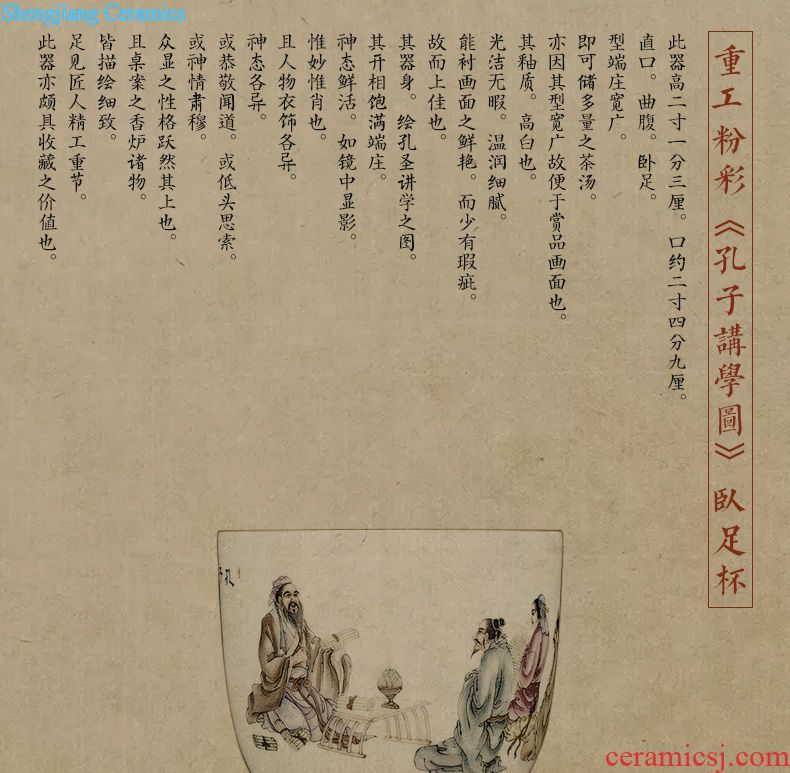 Shengjiang Ceramics
重工粉彩《孔子講學圖》臥足杯
此器高二寸一分三厘。口约二寸四分九厘。
直口。曲腹。卧足。
型端庄宽广。
即可储多量之茶汤。
亦因其型宽广故便于赏品画面也。
其釉质。高白也。
光洁无暇。温润细腻。
能衬画面之鲜艳。而少有瑕疵。
故而上佳也。
其器身。绘孔圣讲学之图。
其开相饱满端庄。
神态鲜活。如镜中显影。
惟妙惟肖也。
且人物衣饰各异。
神态各异。
或恭敬闻道。或低头思索。
或神情肃穆。
众显之性格跃然其上也。
且桌案之香炉诸物。
皆描绘细致。
足见匠人精工重节。
此器亦颇具收藏之价值也。
孔子
ceramicsj.com